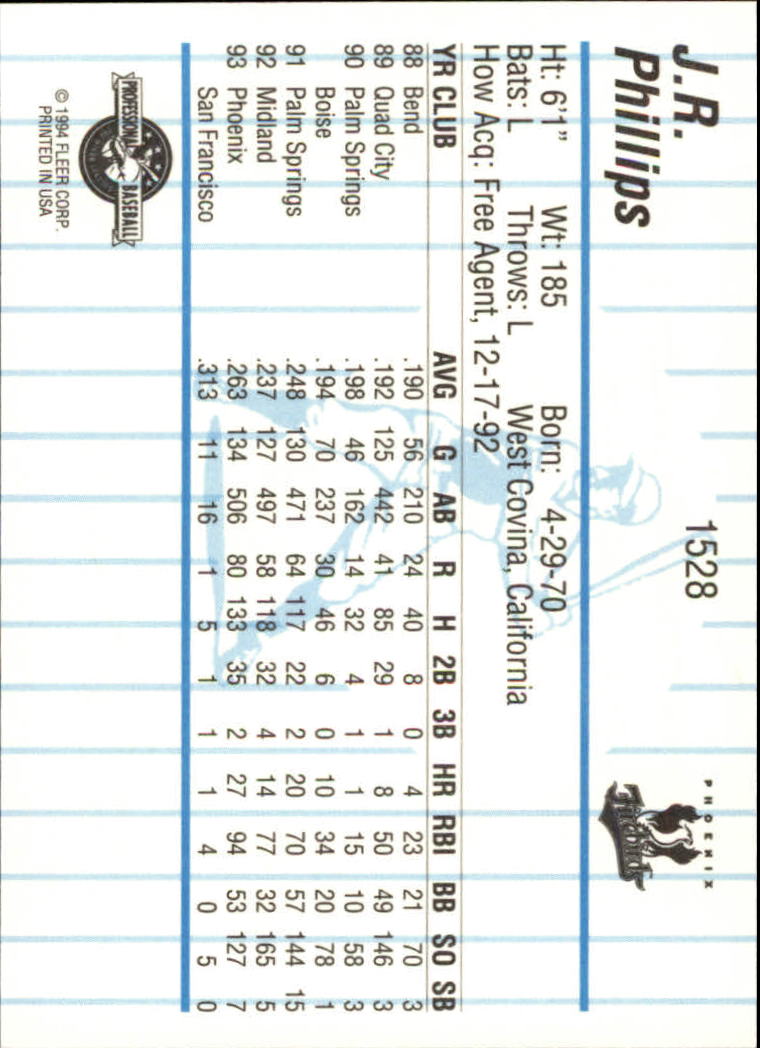 J.R.
Phillips
1528
PHOENIX
Firebirds
Ht: 6'1" Wt: 185 Born: 4-29-70
Bats: L Throws: L West Covina, California
How Acq: Free Agent, 12-17-92
YR CLUB AVG G AB R H 2B 3B HR RBI BB SO SB
88 Bend .190 56 210 24 40 8 0 4 23 21 70 3
89 Quad City .192 125 442 41 85 29 1 8 50 49 146 3
90 Palm Springs .198 46 162 14 32 4 1 1 15 10 58 3
Boise .194 70 237 30 46 6 0 10 34 20 78 1
91 Palm Springs .248 130 471 64 117 22 2 20 70 57 144 15
92 Midland .237 127 497 58 118 32 4 14 77 32 165 5
93 Phoenix .263 134 506 80 133 35 2 27 94 53 127 7
San Francisco .313 11 16 1 5 1 1 1 4 0 5 0
PROFESSIONAL BASEBALL
© 1994 FLEER CORP.
PRINTED IN USA